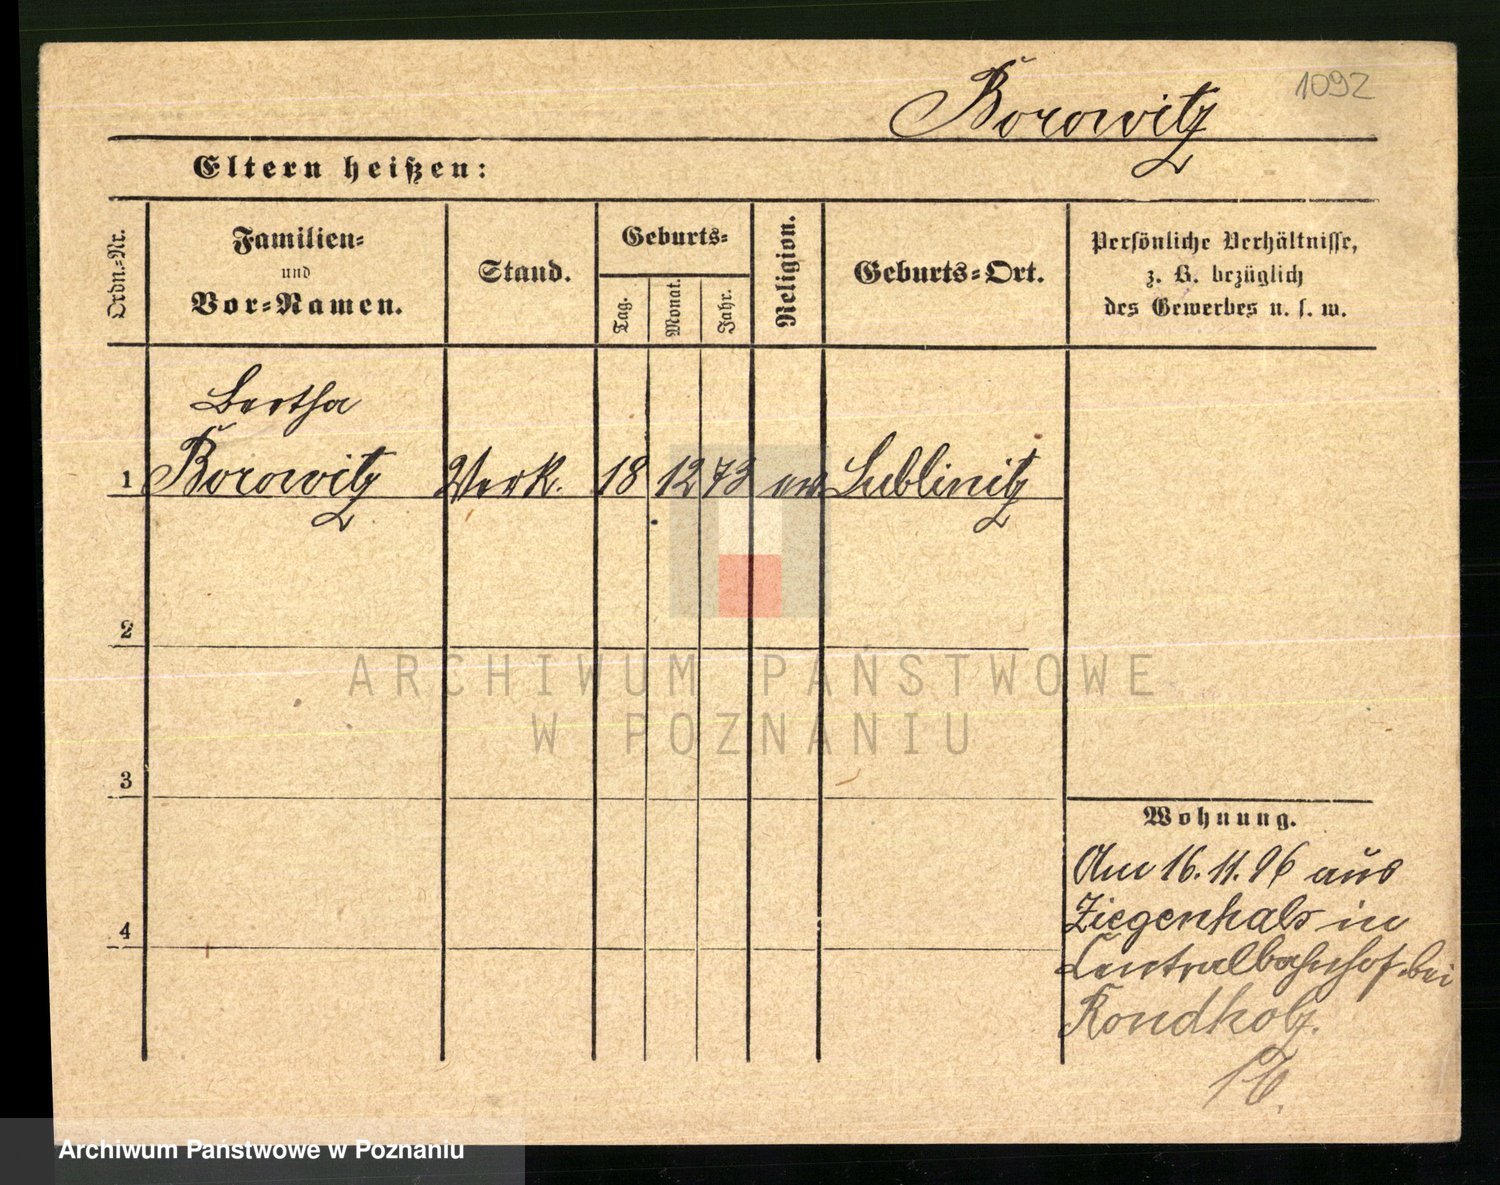 1092
Borowitz
Eltern heißen:
Ordn.-Nr.
Familien-
und
Vor-Namen.
Stand.
Geburts-
Tag.
Monat.
Jahr.
Religion.
Geburts-Ort.
Persönliche Verhältnisse,
z. B. bezüglich
des Gewerbes u. s. w.
Bertha
1 Borowitz Verk. 18 12 73 Lublinitz
2
3
4
Wohnung.
Am 16.11.96 aus
Ziegenhals in
Centralbahnhof bei
Rondholz.
ARCHIWUM PAŃSTWOWE
W POZNANIU
Archiwum Państwowe w Poznaniu